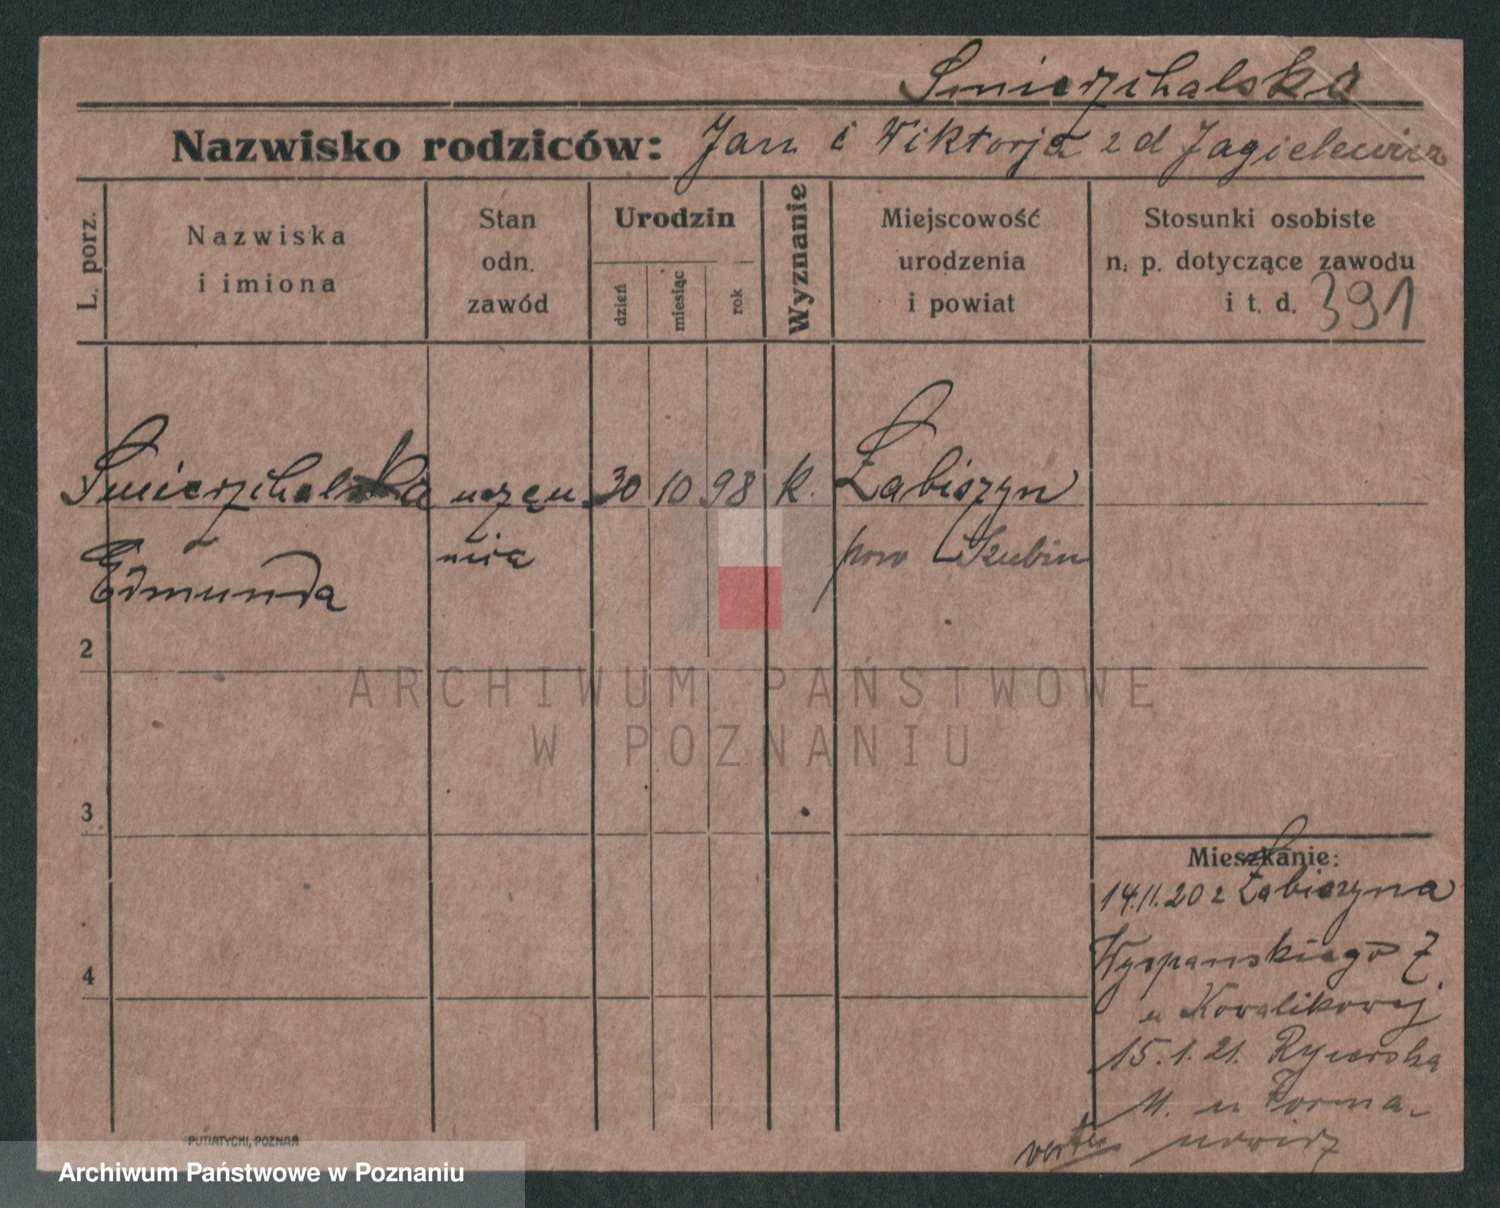 Smierzchalska
Nazwisko rodziców: Jan i Wiktorja z d Jagielewicz
L. porz.
Nazwiska
i imiona
Stan
odn.
zawód
Urodzin
dzień
miesiąc
rok
Wyznanie
Miejscowość
urodzenia
i powiat
Stosunki osobiste
n. p. dotyczące zawodu
i t. d. 391
Smierzchalska uczen 30 10 98 k. Łabiszyn
Edmunda nica pow Szubin
2
3
4
Mieszkanie:
14.11.20 z Łabiszyna
Wyspianskiego 7
u Kowalikowej
15.1.21. Rycerska
11. u Forma-
nowicz
verte
PUTIATYCKI, POZNAŃ
ARCHIWUM PAŃSTWOWE
W POZNANIU
Archiwum Państwowe w Poznaniu